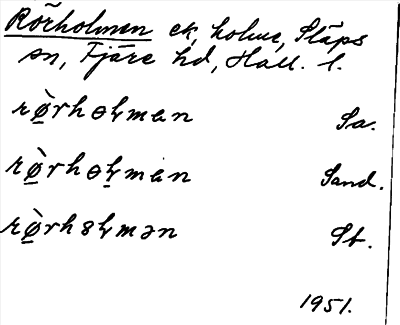 Rörholmen ek, holme, Släps
sn, Fjäre hd, Hall. l.
rø̀rhɵɫmɐn Sa.
rø̀rhɵɫmɐn Sand.
rø̀rhɵɫmən St.
1951.